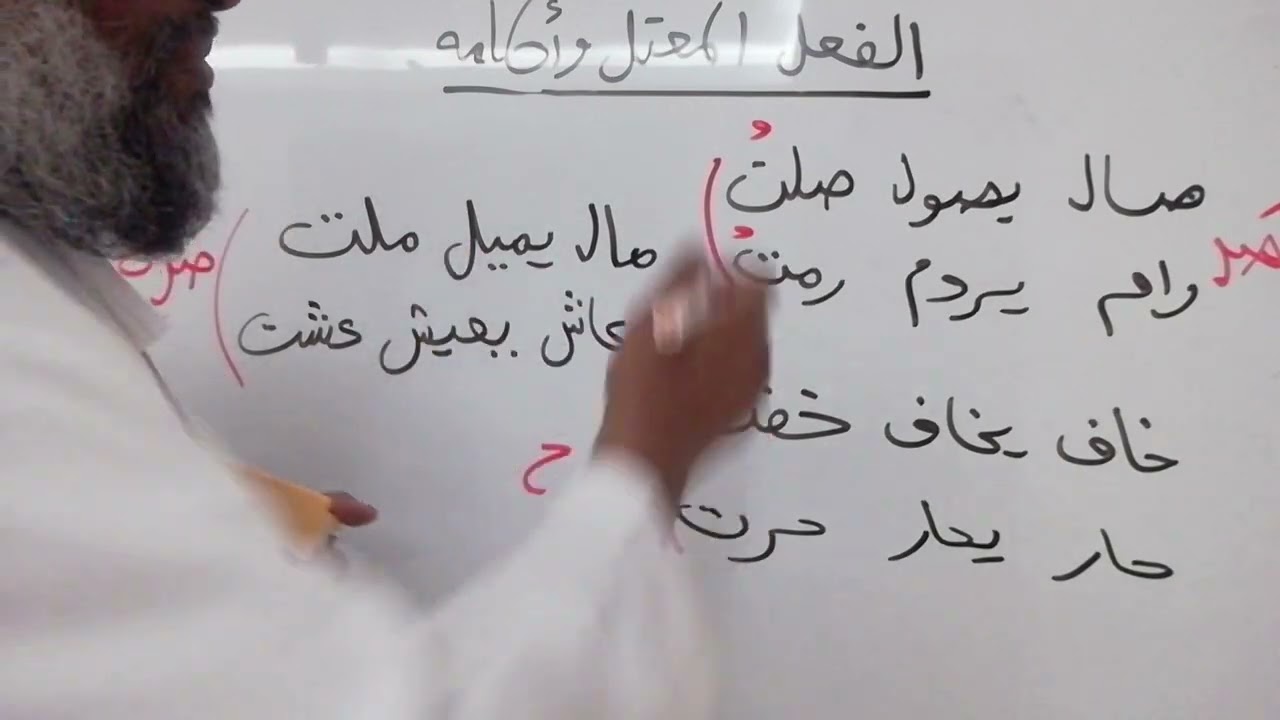 الفعل المعتل وأحكامه
صال يصول صلتُ
رام يروم رمتُ
مال يميل ملت
عاش يعيش عشت
خاف يخاف
حار يحار حرت
ح